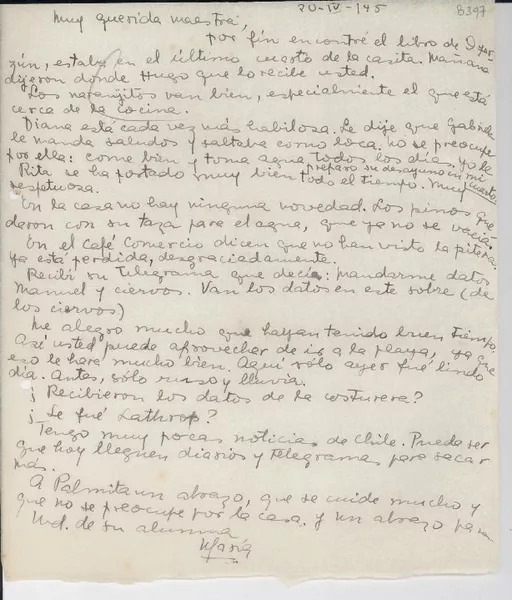 20-IV-145
8397
Muy querida maestra,
por fin encontré el libro de
, estaba en el último cuarto de la casita. Mañana
dijeron donde Hugo que lo recibe usted.
Los naranjitos van bien, especialmente el que está
cerca de la cocina.
Diana está cada vez más habilosa. Le dije que Gabriela
le manda saludos y saltaba como loca. no se preocupe
por ella: come bien y toma agua todos los días. yo le
preparo su desayuno en mi
cuarto.
Rita se ha portado muy bien todo el tiempo. Muy
respetuosa.
En la casa no hay ninguna novedad. Los pinos que-
daron con su taza para el agua, que ya no se vacia.
En el Café Comercio dicen que no han visto la pitera.
ya está perdida, desgraciadamente.
Recibí su telegrama que decía: mandarme datos
Manuel y ciervos. Van los datos en este sobre (de
los ciervos)
Me alegro mucho que hayan tenido buen tiempo.
Así usted puede aprovechar de ir a la playa, ya que
eso le hará mucho bien. Aquí sólo ayer fué lindo
día. Antes, sólo y lluvia.
¿Recibieron los datos de la costurera?
¿Se fué Lathrop?
Tengo muy pocas noticias de Chile. Puede ser
que hoy lleguen diarios y telegramas para sacar
más.
A Palmita un abrazo, que se cuide mucho y
que no se preocupe por la casa. y un abrazo para
Ud. de su alumna
María